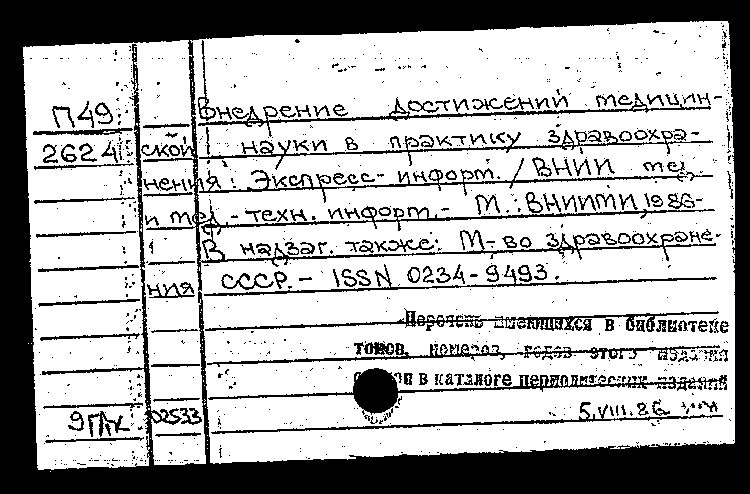 П49 Внедрение достижений медицин-
2624 ской науки в практику здравоохра-
нения: Экспресс-информ. / ВНИИ мед.
и мед.-техн. информ. - М.: ВНИИМИ, 1986-
В надзаг. также: М-во здравоохране-
ния СССР. - ISSN 0234-9493.
Перечень имеющихся в библиотеке
томов, номеров, годов этого издания
в каталоге периодических изданий
02533 5.VIII.86